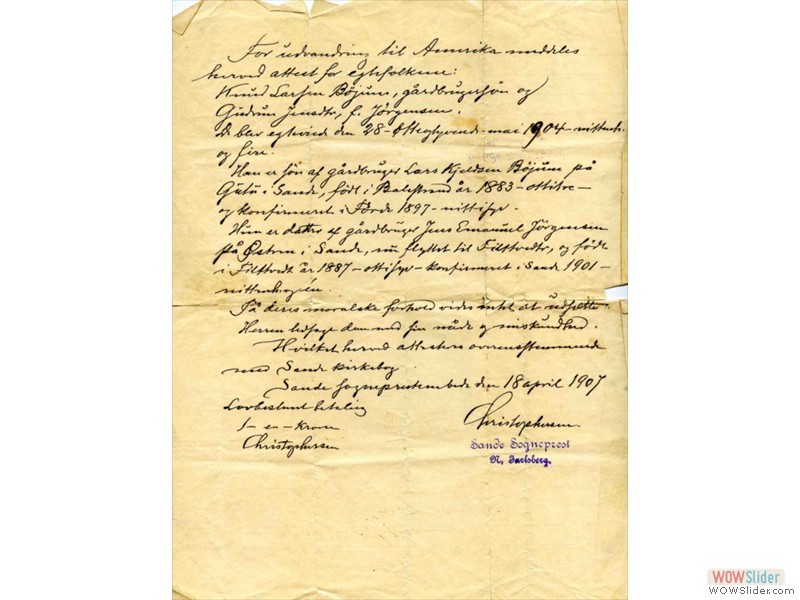 For udvandring til Amerika meddeles
herved attest for egtefolkene:
Knud Larsen Böjum, gårdbrugersön og
Gudrun Jensdtr, f. Jörgensen.
De blev egteviede den 28-otteogtyvende-mai 1904-nitten
og fire.
Han er sön af gårdbruger Lars Kjeldsen Böjum på
i Sande, född i Balestrand år 1883-ottitre-
og konfirmeret i Förde 1897-nittisyv.
Hun er datter af gårdbruger Jens Emanuel Jörgensen
på Østren i Sande, nu flyttet til Filtvedt, og född
i Filtvedt år 1887-ottisyv-konfirmeret i Sande 1901-
nittenhogén.
På deres moralske forhold vides intet at udsette.
Herren ledsage dem med sin nåde og miskundhed.
Hvilket herved attesteres overensstemmende
med Sande kirkebog
Sande sogneprestembede den 18 april 1907
Lovbestemt betaling
1-en-krone
Christophersen
Christophersen
Sande Sogneprest
N. Jarlsberg.
WOWSlider
WOWSlider.com